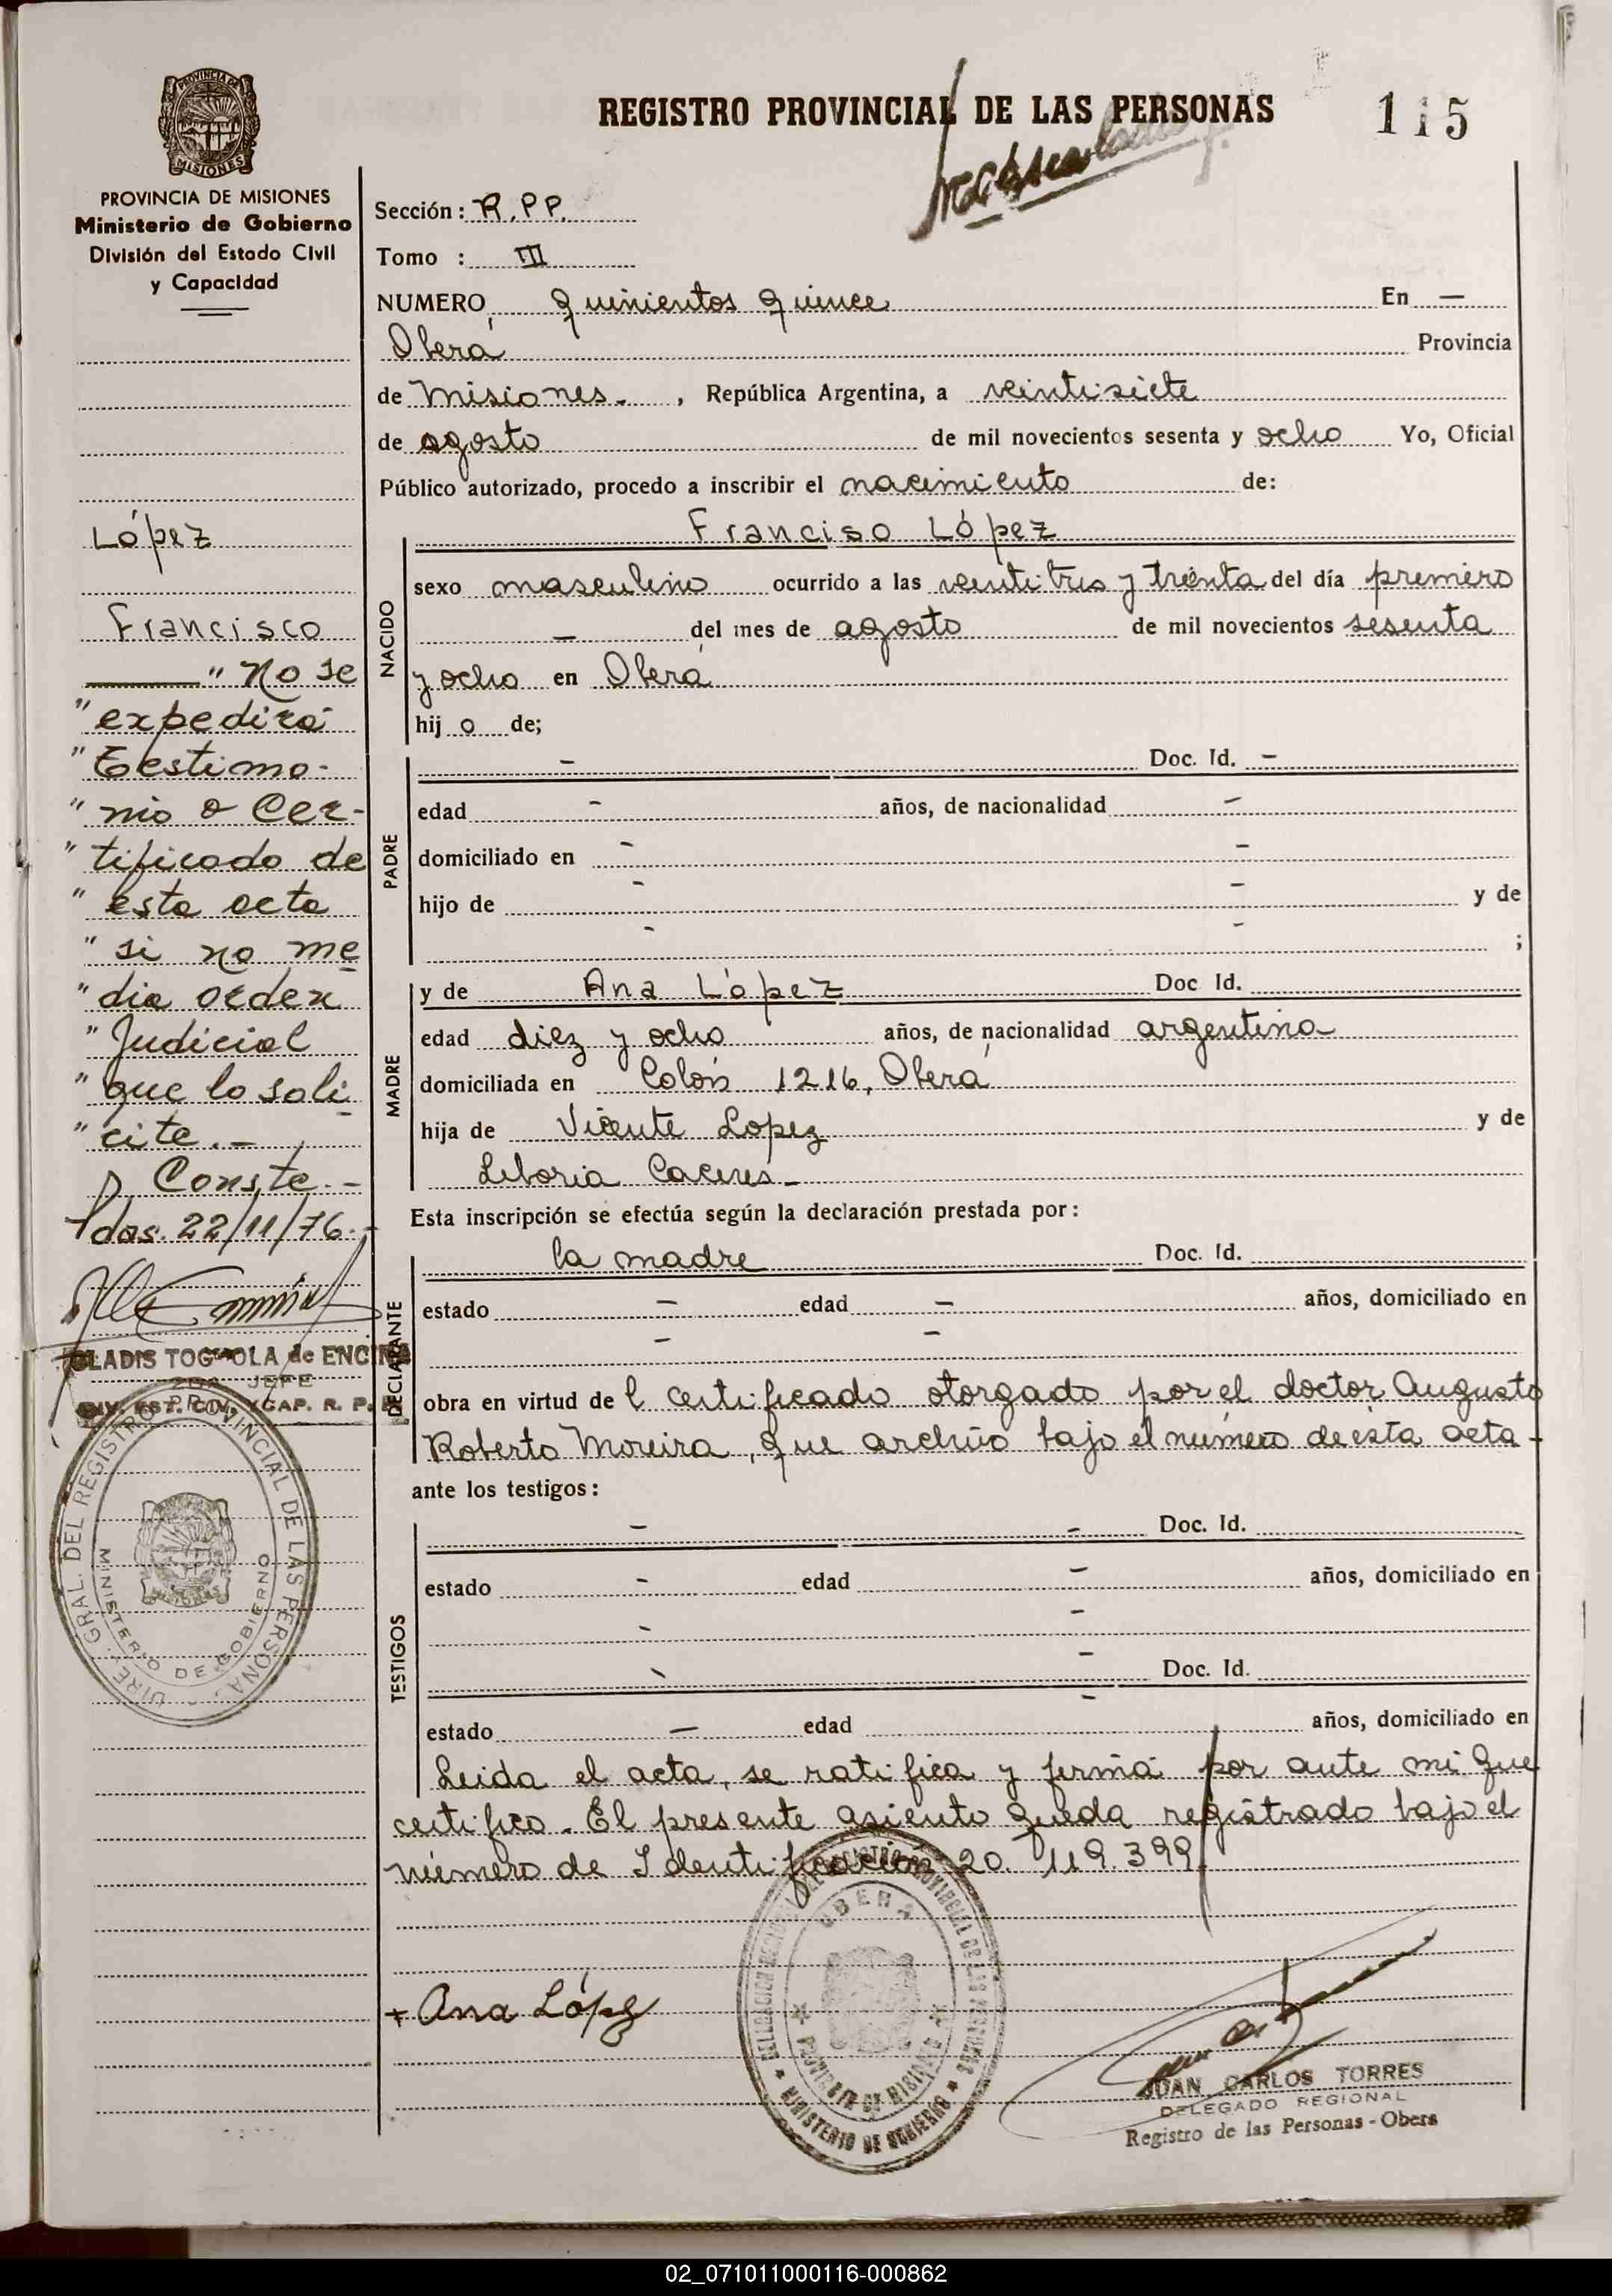 REGISTRO PROVINCIAL DE LAS PERSONAS
115
PROVINCIA DE
MISIONES
PROVINCIA DE MISIONES
Ministerio de Gobierno
División del Estado Civil
y Capacidad
López
Francisco
" No se
" expedirá
" Testimo-
" nio o Cer-
" tificado de
" esta acta
" si no me
" dia orden
" Judicial
" que lo soli
" cite.-
Conste.-
Pdas. 22/11/76.-
GLADIS TOGNOLA de ENCINA
2DA JEFE
DIV. EST. CIV. Y CAP. R. P. P.
GRAL. DEL REGISTRO PROVINCIAL DE LAS PERSONAS
MINISTERIO DE GOBIERNO
Sección: R.P.P.
Tomo : III
NUMERO quinientos quince En —
Oberá Provincia
de Misiones. , República Argentina, a veintisiete
de agosto de mil novecientos sesenta y ocho Yo, Oficial
Público autorizado, procedo a inscribir el nacimiento de:
NACIDO
Franciso López
sexo masculino ocurrido a las veintitres y treinta del día primero
— del mes de agosto de mil novecientos sesenta
y ocho en Oberá
hij o de;
PADRE
- Doc. Id. -
edad - años, de nacionalidad -
domiciliado en - -
hijo de - - y de
- - ;
MADRE
y de Ana López Doc Id.
edad diez y ocho años, de nacionalidad argentina
domiciliada en Colón 1216, Oberá
hija de Vicente Lopez y de
Liboria Caceres -
Esta inscripción se efectúa según la declaración prestada por:
DECLARANTE
la madre Doc. Id.
estado — edad — años, domiciliado en
— —
obra en virtud de l certificado otorgado por el doctor Augusto
Roberto Moreira, que archivo bajo el número de esta acta -
ante los testigos:
TESTIGOS
- - Doc. Id.
estado - edad - años, domiciliado en
- -
- - Doc. Id.
estado — edad - años, domiciliado en
Leida el acta, se ratifica y firma por ante mi que
certifico. El presente asiento queda registrado bajo el
número de Identificación 20. 119.399
Ana López
OBERA
DELEGACION REGIONAL DEL REGISTRO PROVINCIAL DE LAS PERSONAS
PROVINCIA DE MISIONES
MINISTERIO DE GOBIERNO
JUAN CARLOS TORRES
DELEGADO REGIONAL
Registro de las Personas - Obera
02_071011000116-000862